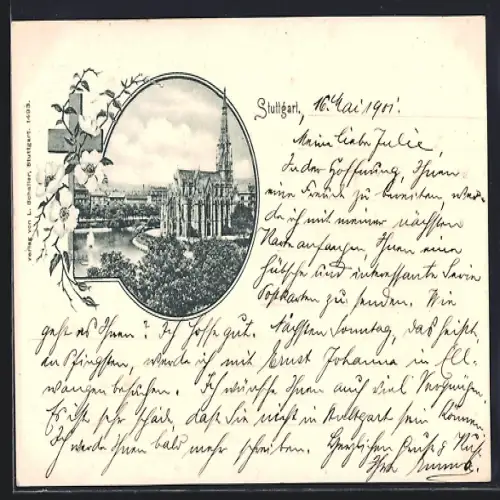 Verlag von L. Schaller, Stuttgart. 1493.
Stuttgart, 16. Mai 1901.
Meine liebe Julie,
In der Hoffnung, Ihnen
eine Freude zu bereiten, werde
ich mit meiner nächsten
Karte anfangen Ihnen eine
hübsche und interessante Serie
Postkarten zu senden. Wie
geht es Ihnen? Ich hoffe gut. Nächsten Sonntag, das heißt
an Pfingsten, werde ich mit Ernst Johanna in Ell-
wangen besuchen. Ich wünsche Ihnen auch viel Vergnügen.
Es ist sehr schade, daß Sie nicht in Stuttgart sein können.
Ich werde Ihnen bald mehr schreiben. Herzlichen Gruß & Kuß
Ihre Emma.